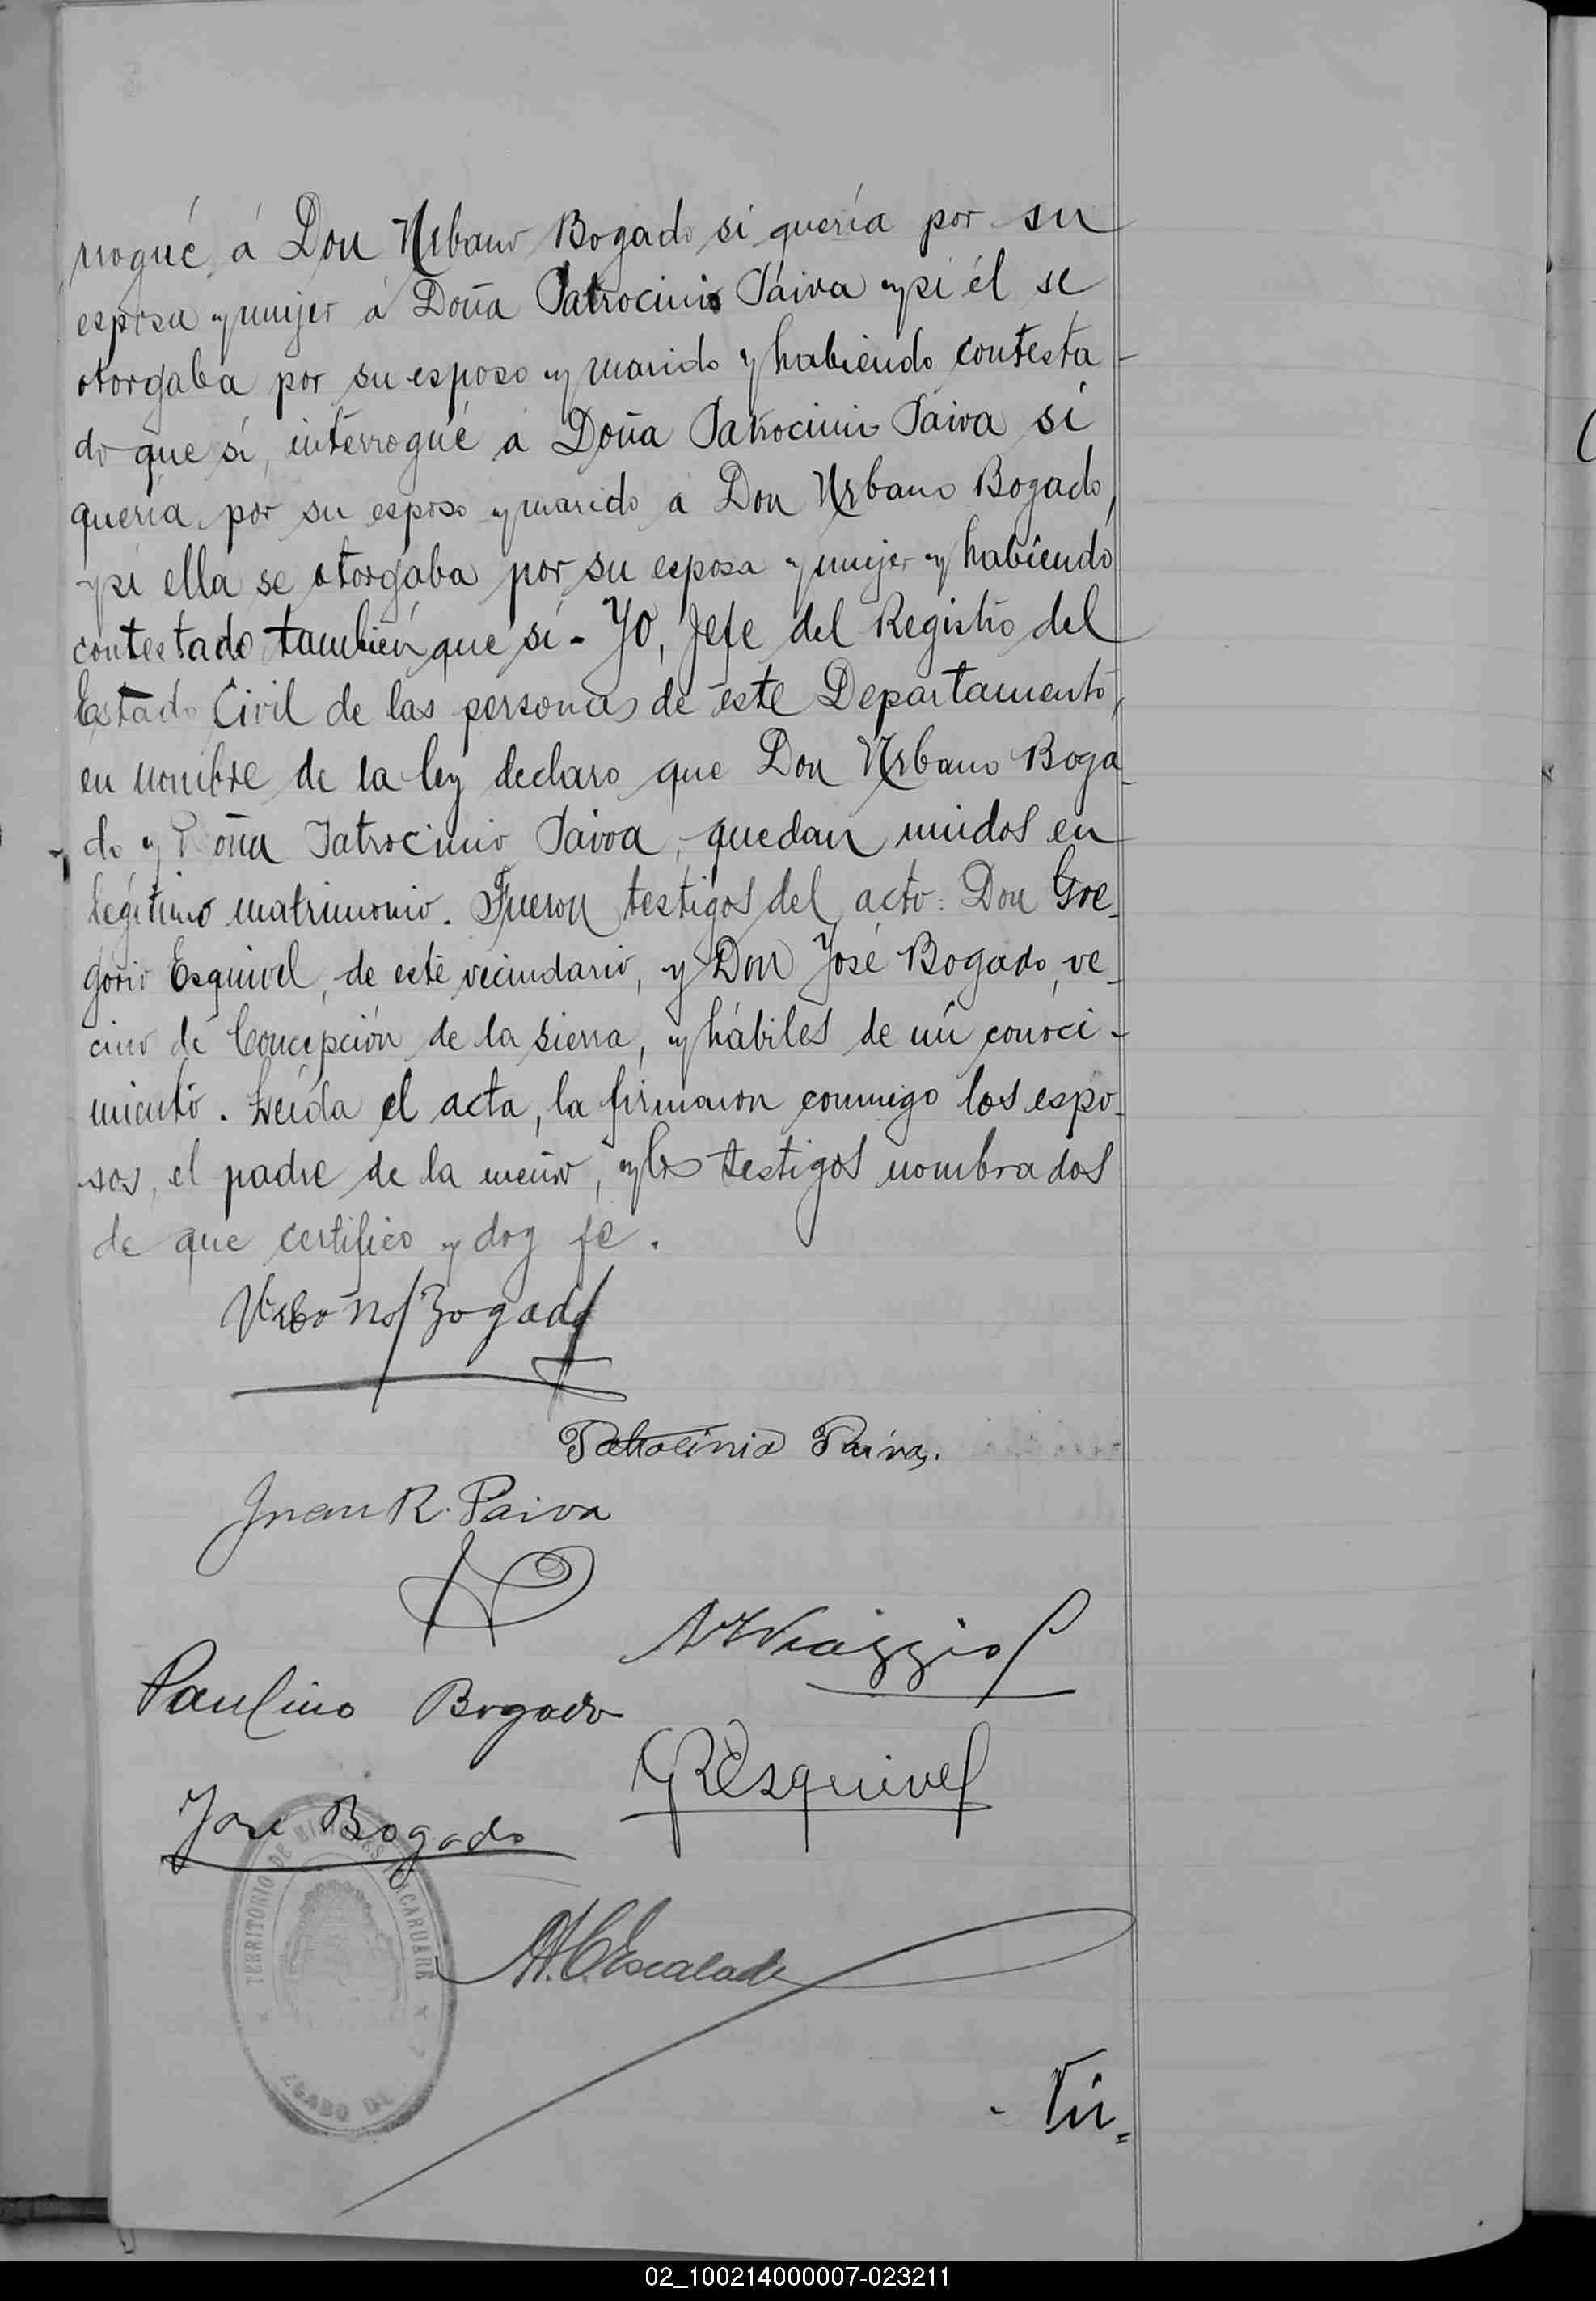 rrogué á Don Urbano Bogado si quería por su
esposa y mujer á Doña Patrocinio Paiva y si él se
otorgaba por su esposo y marido y habiendo contesta-
do que sí, interrogué á Doña Patrocinio Paiva si
quería por su esposo y marido a Don Urbano Bogado,
y si ella se otorgaba por su esposa y mujer y habiendo
contestado también que sí - Yo, Jefe del Registro del
Estado Civil de las personas de este Departamento,
en nombre de la ley declaro que Don Urbano Boga-
do y Doña Patrocinio Paiva, quedan unidos en
legítimo matrimonio. Fueron testigos del acto: Don Gre-
gorio Esquivel, de este vecindario, y Don José Bogado, ve-
cino de Concepción de la Sierra, y hábiles de mi conoci-
miento. Leída el acta, la firmaron conmigo los espo-
sos, el padre de la menor, y los testigos nombrados
de que certifico y doy fe.
Urbano Bogado
Patrocinia Paiva.
Juan R. Paiva
Viaggio
Paulino Bogado
G R Esquivel
José Bogado
TERRITORIO DE MISIONES
Escalada
02_100214000007-023211